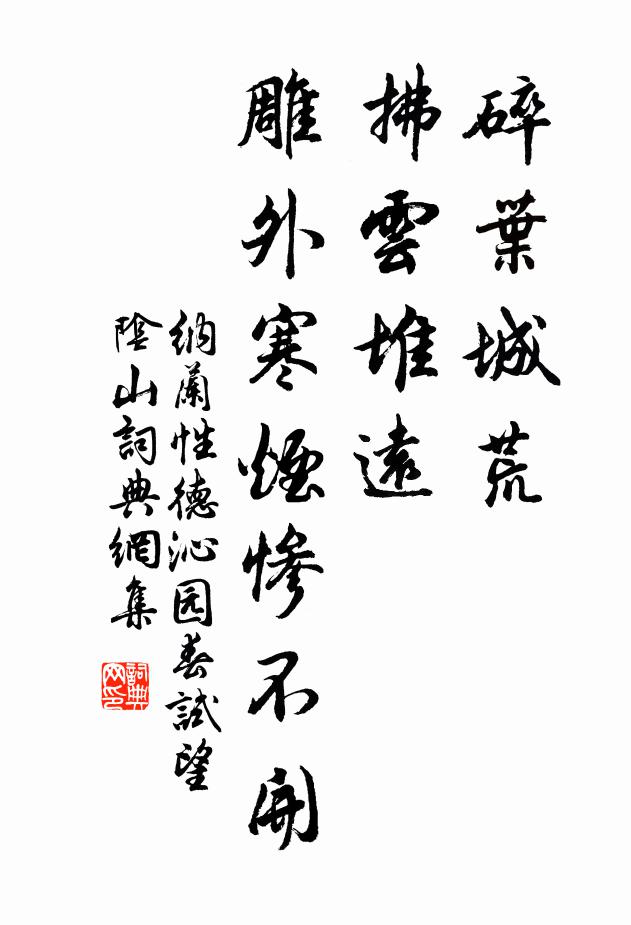 碎葉城荒
拂雲堆遠
雕外寒煙慘不開
納蘭性德沁园春試望
陰山詞典網集
詞典
网印